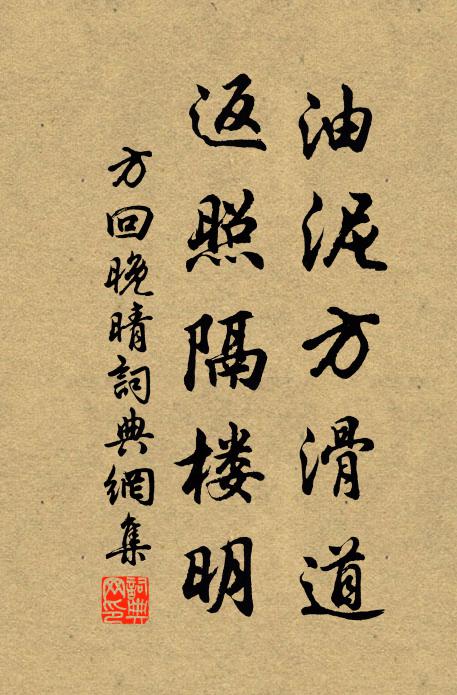 油泥方滑道
返照隔楼明
方回晚晴詞典網集
詞典网印